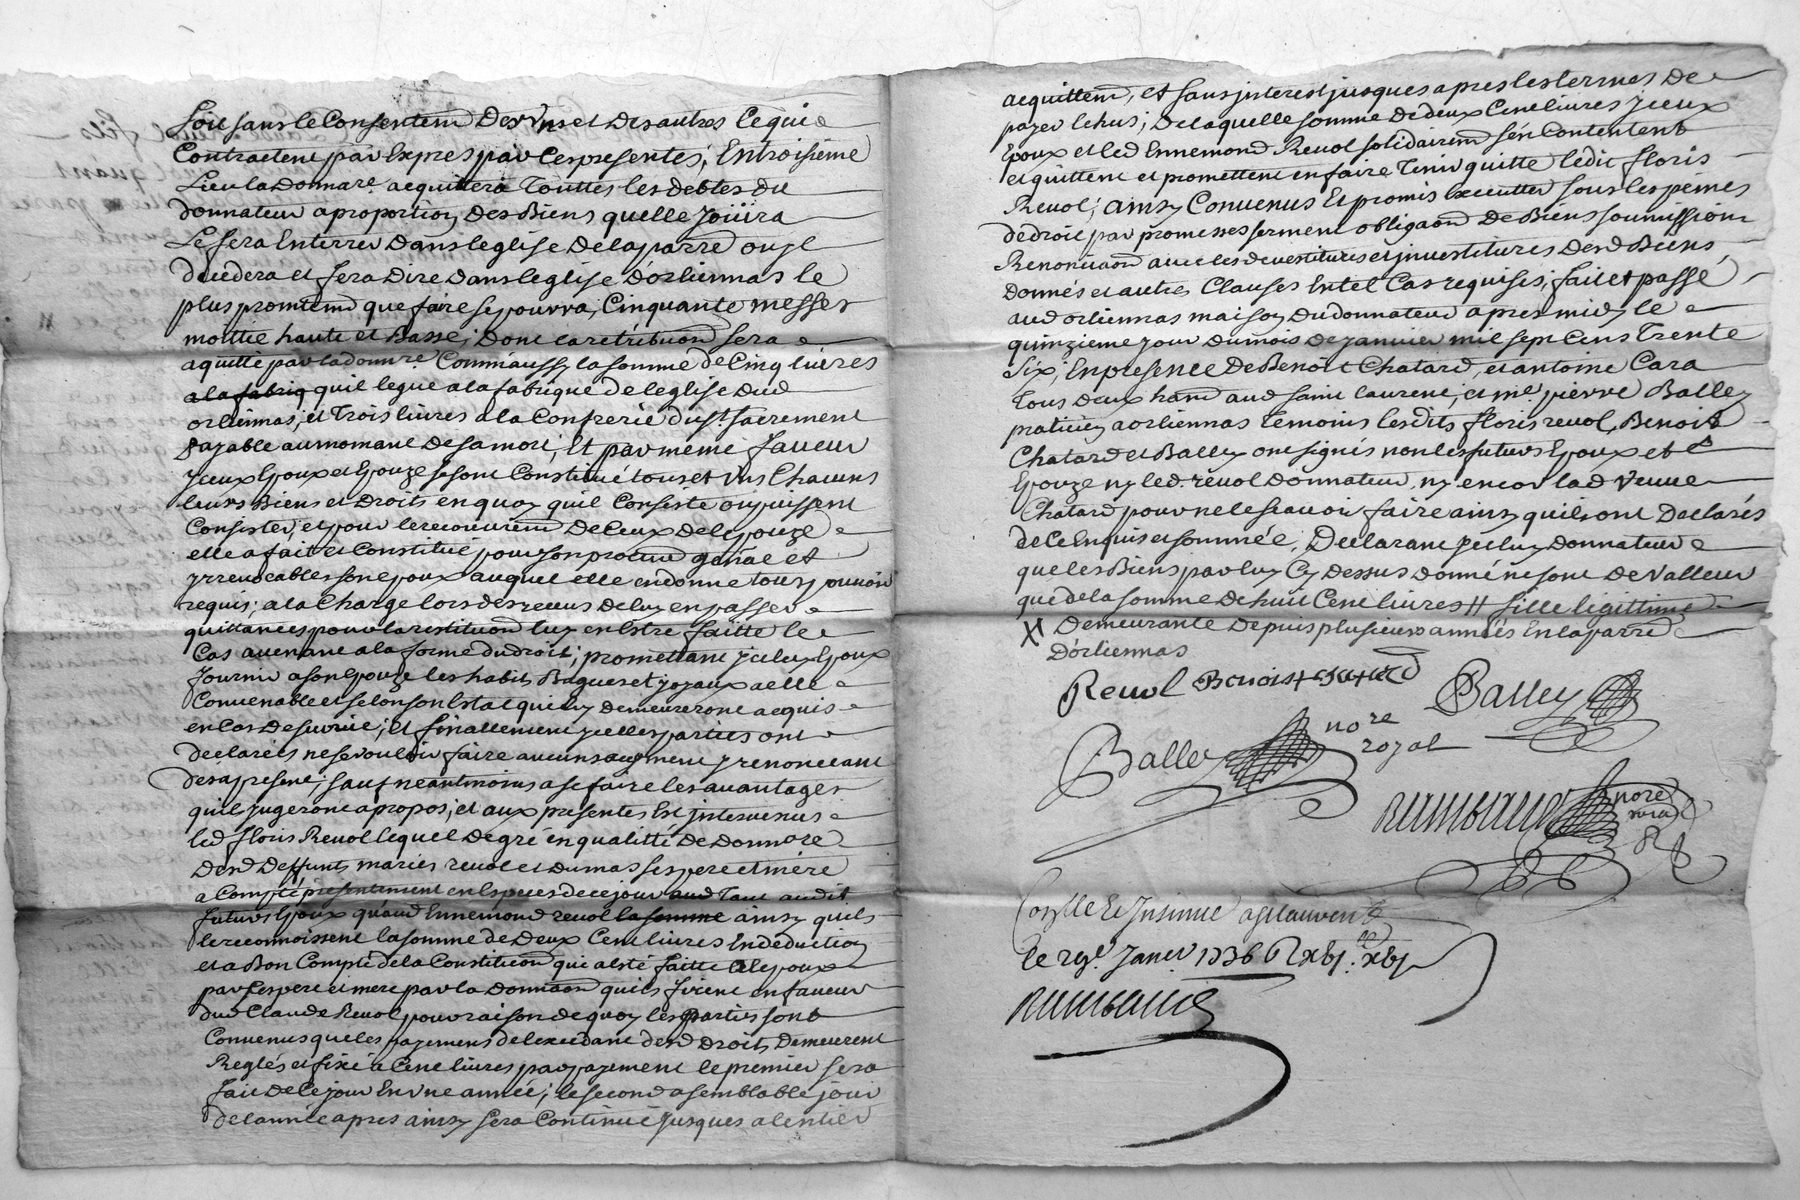 soit sans le Consentem̄ Des Vns et Des autres Ce qui a
Contractent par Expres par Ces presentes; En troisieme
Lieu la Donnare. acquittera Touttes les debtes du
donnateur a proportion Des Biens quelle Joüira
Le fera Enterrer Dans leglise De la parre ou Jl
decedera et fera Dire Dans leglise D'orliennas le
plus promtem̄ que faire se pourra, Cinquante messes
moitie haute et Basse; Dont la retribuon̄ sera
aquitté par la donnre. Comm'aussy la somme de Cinq livres
a la fabriq quil legue a la fabrique de leglise Dud
orliennas; et Trois livres a la Confrerie du st. sacrement
payable au momant De sa mort; Et par meme faveur
Jceux Epoux et Epouze se sont Constitué tous et Vns Chacuns
leurs Biens et Droits en quoy quil Consiste ou puissent
Consister, et pour le recouvrem̄ De Ceux De lepouze
elle a fait et Constitué pour son procur̄ genāl et
Jrrevocable son epoux auquel elle en donne tous pouvoir
requis; a la Charge lors des receus de luy en passer
quittances pour la restituon̄ luy en Estre faitte le
Cas avenant a la forme du droit; promettant Jcelux Epoux
fournir a son Epouze les habits Bagues et joyaux a elle
Convenable et selon son Estat qui luy demeureront acquis
en cas De survie; et finallement Jcelles parties ont
declarées ne se vouloir faire aucuns augment y renoncant
des a present; sauf neantmoins a se faire les avantages
quil jugeront a propos; et aux presentes Est jntervenus
led floris Revol lequel De gré en qualitté De Donnore
Desd Deffunts mariés revol et dumas ses pere et mere
a Compté presentement en Especes de ce jour aud Tant audit
futurs Epoux qu'aud Ennemond revol la somme ainsy quils
le reconnoissent la somme de Deux Cent livres En deduction
et a Bon Compte de la Constituon̄ qui a esté faitte a lepoux
par ses pere et mere par la Donnaon̄ quils firent en faveur
dud Claude Revol pour raison de quoy les parties sont
Convenus que les payemens de lexcedant desd Droits Demeurent
Reglés et fixé a Cent livres par payement le premier sera
fait de Ce jour En vne année; le second a semblable jour
de lannée apres ainsy sera Continué Jusques a lentier
acquittem̄, et sans jnterest jusques apres les termes De
payer lehus; De laquelle somme de deux Cent livres Jceux
Epoux et led Ennemond Revol solidairem̄ s'en Contentent
et quittent et promettent en faire Tenir quitte ledit floris
Revol; ainsy Convenus Et promis Executter sous les peines
de droit par promesses serment obligaon̄ De Biens soumissions
Renonciaon̄ avec les devestitures et jnvestitures Desd Biens
Donnés et autres Clauses En tel Cas requises; fait et passé
aud orliennas maison du donnateur apres midy le
quinzieme jour du mois de janvier mil sept Cens Trente
Six; En presence De Benoît Chatard, et antoine Cara
Tous deux hant̄ aud saint laurent; et me. pierre Balley
praticien a orliennas temoins lesdits floris revol, Benoist
Chatard et Balley ont signés non les futurs Epoux et
Epouze ny led. revol Donnateur, ny encor lad Veuve
Chatard pour ne le scavoir faire ainsy quils ont Declarés
de Ce Enquis et sommée, Declarant Jcelux Donnateur
que les Biens par luy Cy Dessus donné ne sont De Valleur
que de la somme de huit Cent livres # fille legittime
X Demeurante Depuis plusieurs années En la parre
D'orliennas
Revol Benoist Chatard Balley
Balley nore
royal
Raimbaud nore
royal
Conlle Et Jnsinué a st laurent
le 29e. Janer 1736 R xbj. xbj
Raimbaud